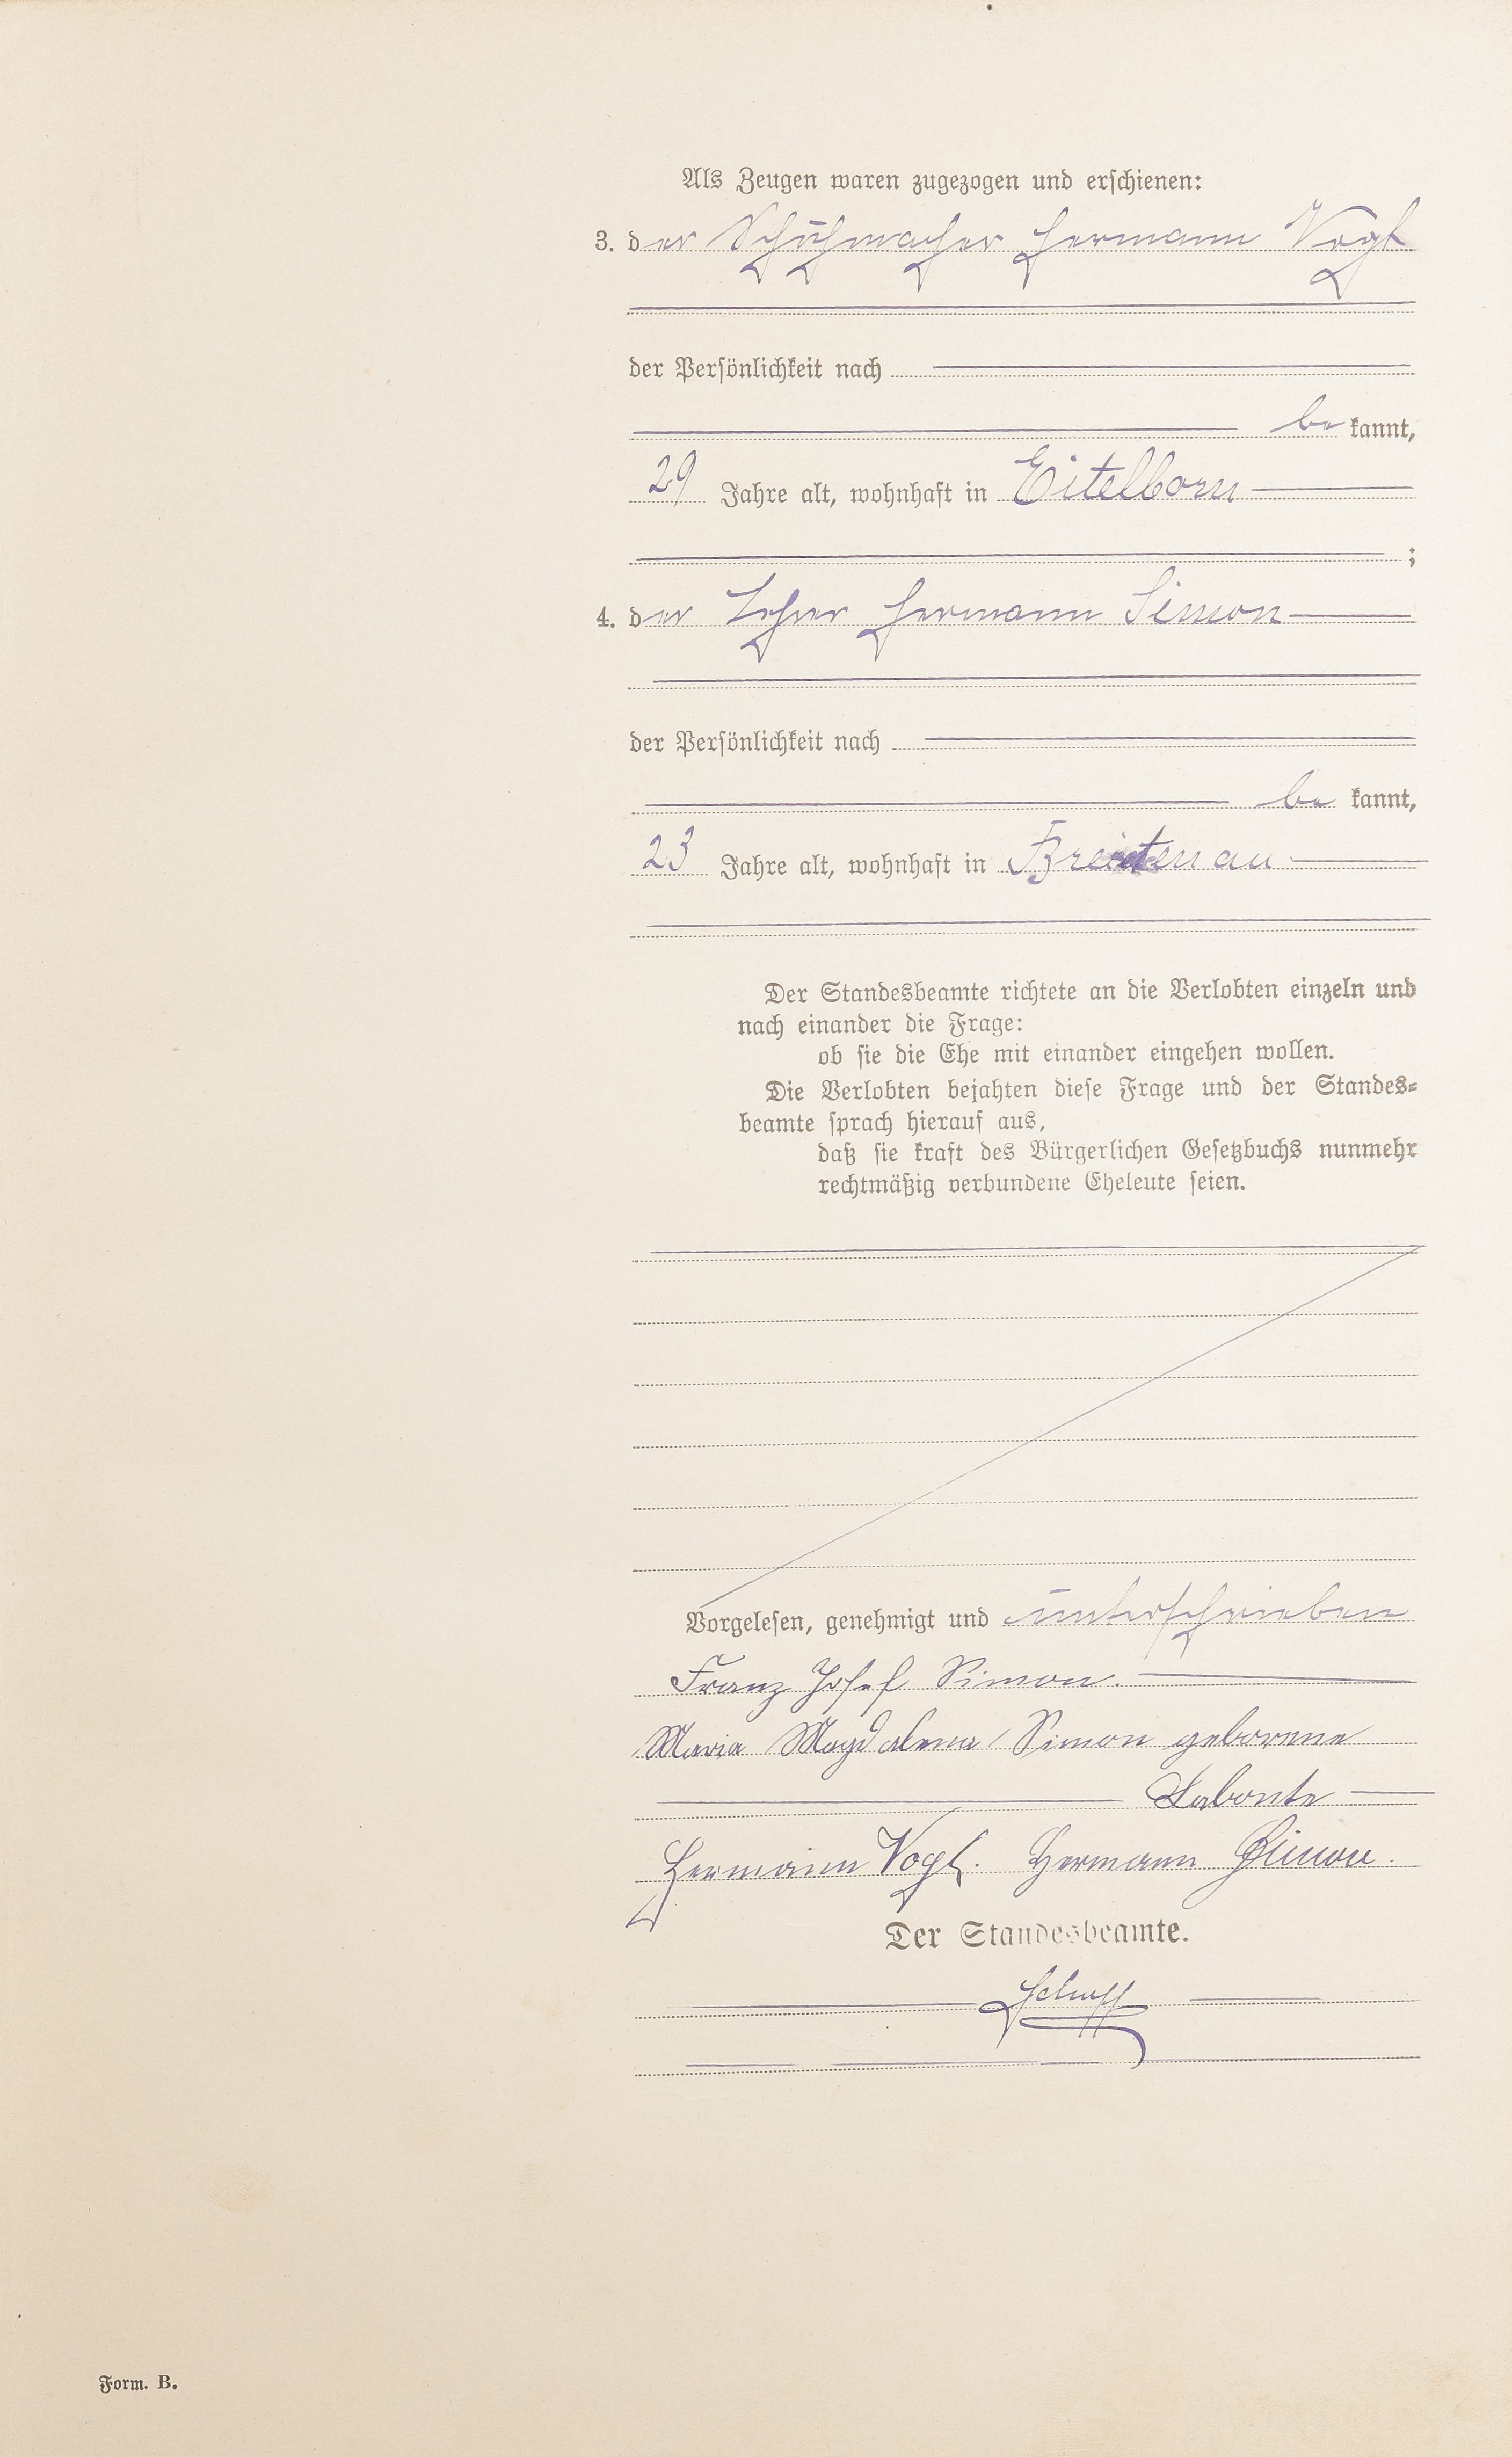 Als Zeugen waren zugezogen und erschienen:
3. der Schuhmacher Hermann Vogt
der Persönlichkeit nach
be kannt,
29 Jahre alt, wohnhaft in Eitelborn
;
4. der Lehrer Hermann Simon
der Persönlichkeit nach
be kannt,
23 Jahre alt, wohnhaft in Breitenau
Der Standesbeamte richtete an die Verlobten einzeln und
nach einander die Frage:
ob sie die Ehe mit einander eingehen wollen.
Die Verlobten bejahten diese Frage und der Standes-
beamte sprach hierauf aus,
daß sie kraft des Bürgerlichen Gesetzbuchs nunmehr
rechtmäßig verbundene Eheleute seien.
Vorgelesen, genehmigt und unterschrieben
Franz Josef Simon.
Maria Magdalena Simon geborene
Labonte
Hermann Vogt. Hermann Simon.
Der Standesbeamte.
Form. B.